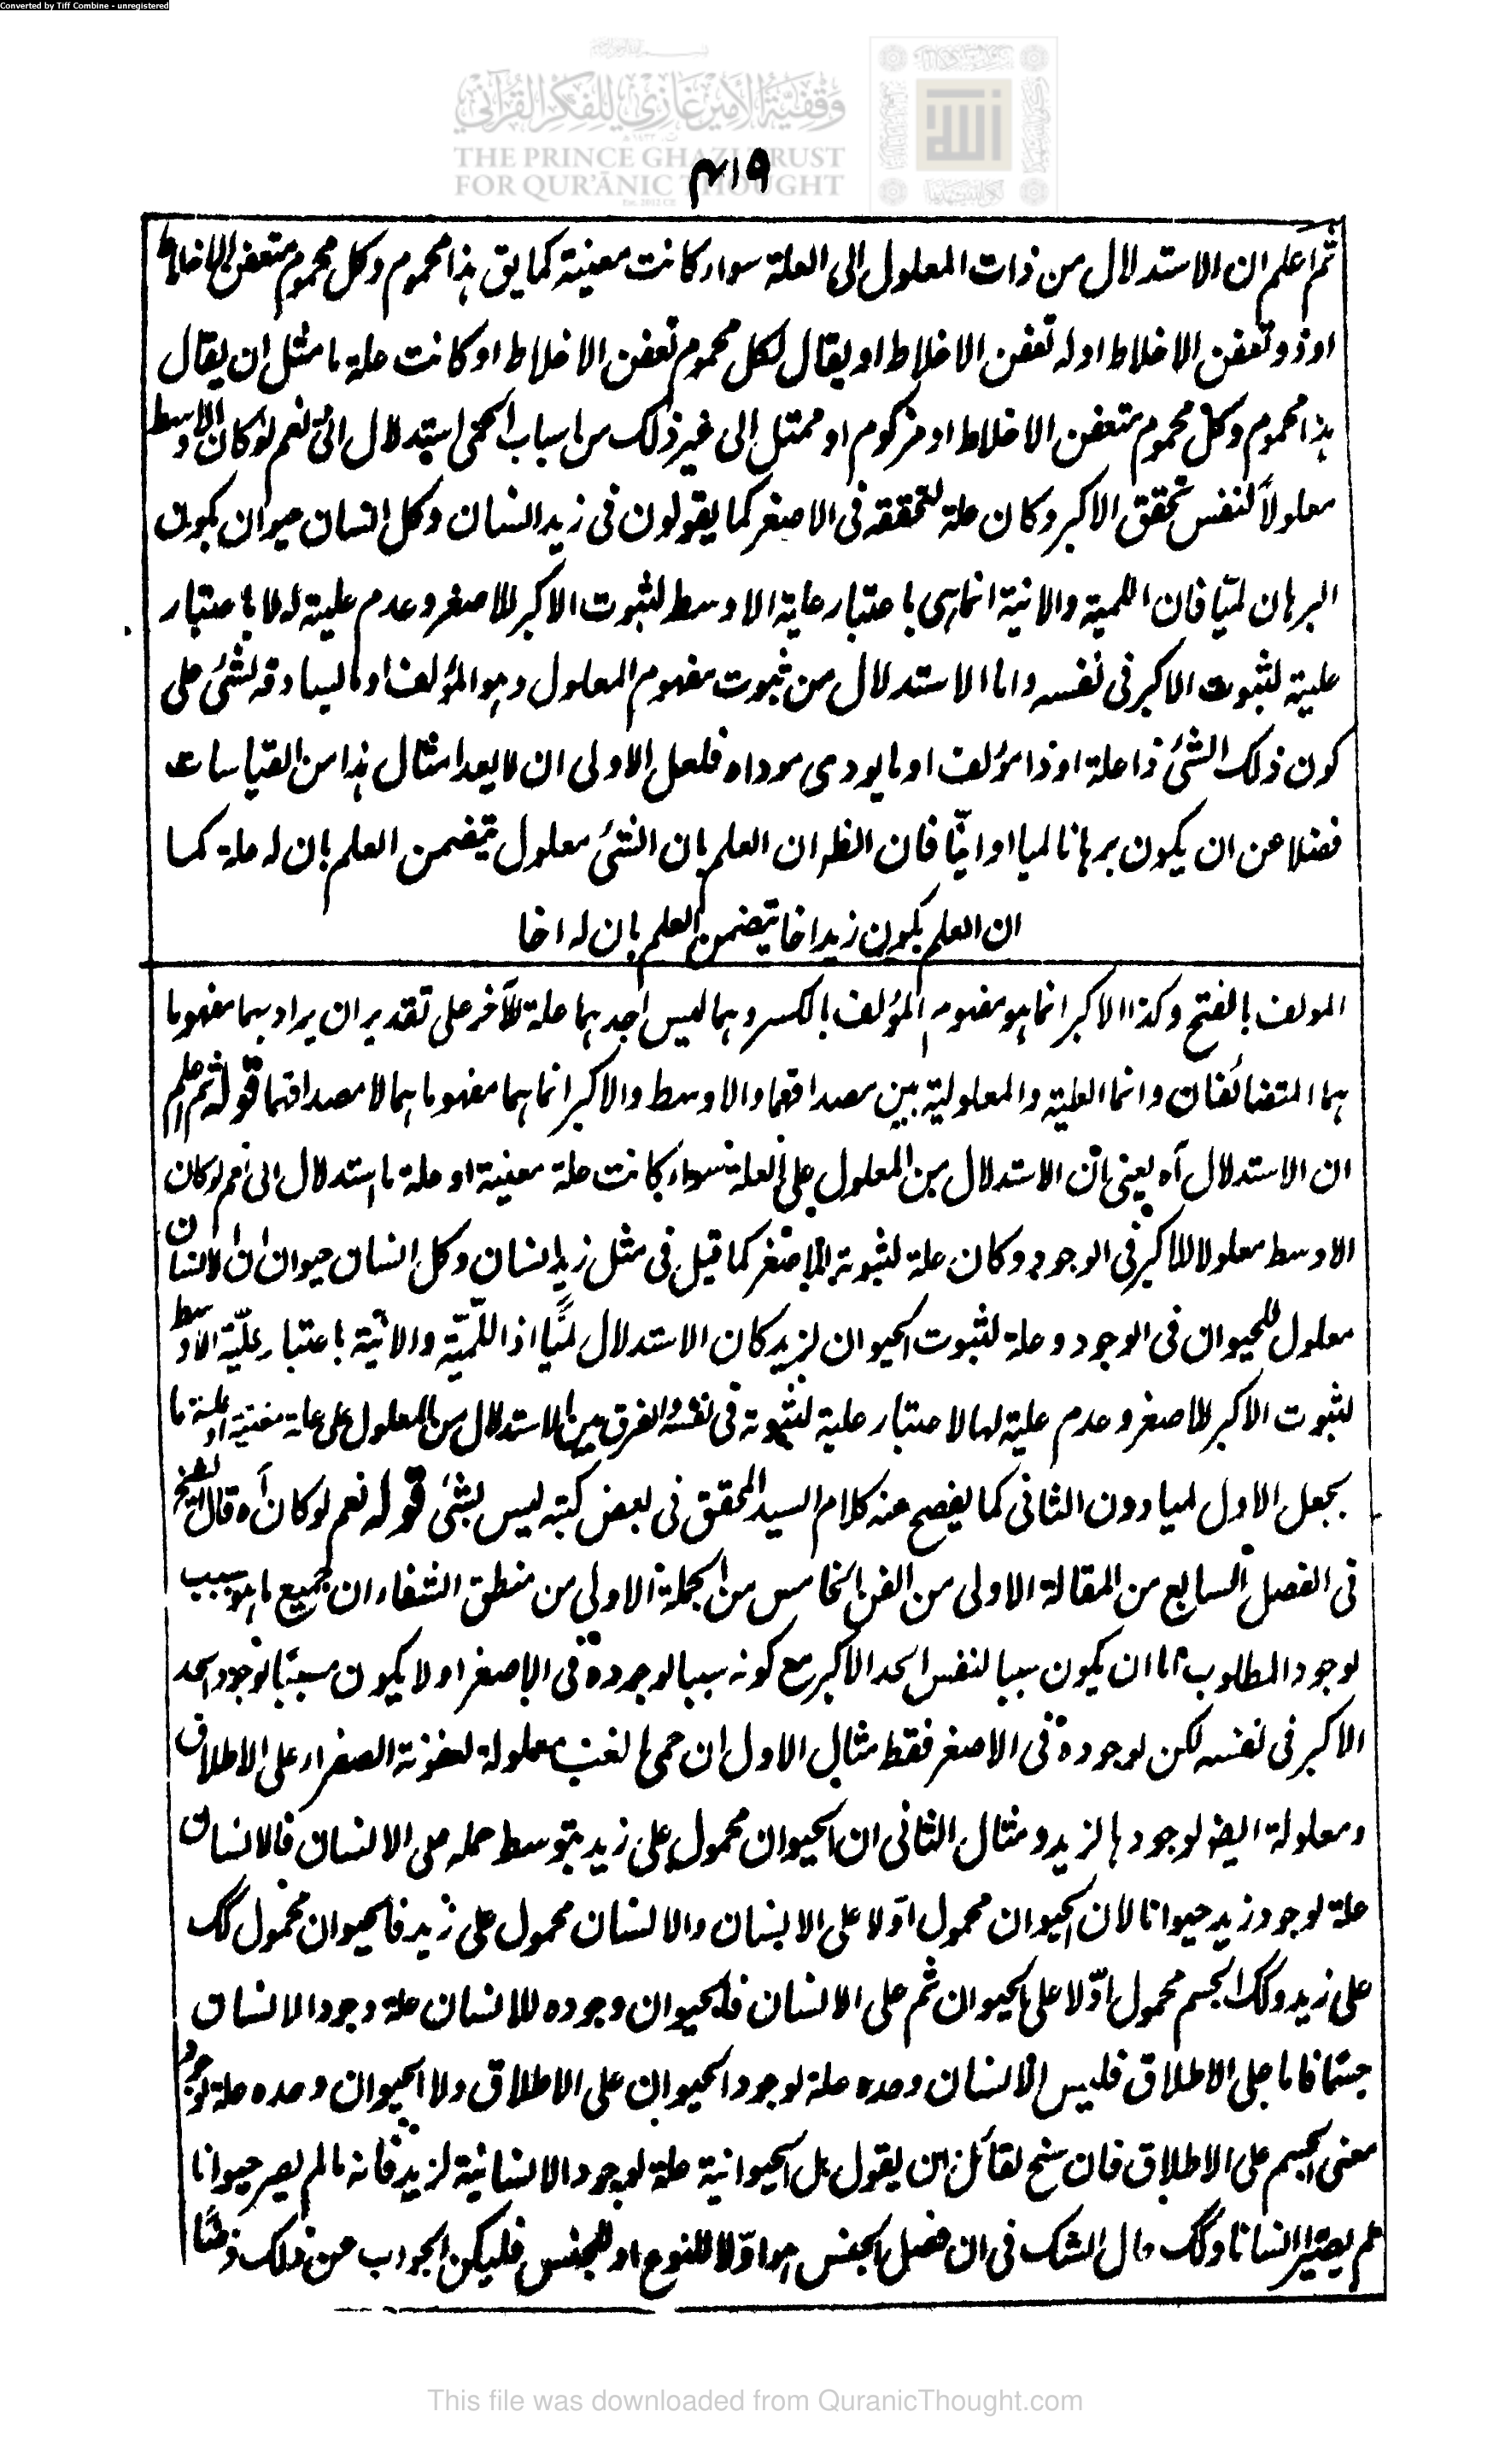 Converted by Tiff Combine - unregistered
وقفية الأمير غازي للفكر القرآني
THE PRINCE GHAZI TRUST
FOR QUR'ĀNIC THOUGHT
٤١٩
ثم اعلم ان الاستدلال من ذات المعلول الى العلة سواء كانت معينة كما يق هذا محموم وكل محموم متعفن الاخلاط
او ذو تعفن الاخلاط او له تعفن الاخلاط او يقال لكل محموم تعفن الاخلاط او كانت علة ما مثل ان يقال
هذا محموم وكل محموم متعفن الاخلاط او مزكوم او ممتل الى غير ذلك من اسباب الحمى استدلال انى نعم لو كان الاوسط
معلولاً لنفس تحقق الاكبر وكان علة لتحققه فى الاصغر كما يقولون فى زيد انسان وكل انسان حيوان يكون
البرهان لميّا فان اللمية والانية انما هى باعتبار علية الاوسط لثبوت الاكبر للاصغر وعدم علية له لا باعتبار
علية لثبوت الاكبر فى نفسه واما الاستدلال من ثبوت مفهوم المعلول وهو المؤلف او ما يساوقه لشئ على
كون ذلك الشئ ذا علة او ذا مؤلف او ما يودى موداه فلعل الاولى ان لا يعد امثال هذا من القياسات
فضلا عن ان يكون برهانا لميا او انيّا فان الظ ان العلم بان الشئ معلول يتضمن العلم بان له علة كما
ان العلم بكون زيد اخا يتضمن العلم بان له اخا
المولف بالفتح وكذا الاكبر انما هو مفهوم المؤلف بالكسر وهما ليس احدهما علة للآخر على تقدير ان يراد بهما مفهوما
هما المتضائفان وانما العلية والمعلولية بين مصداقهما والاوسط والاكبر انما هما مفهوماهما لا مصداقهما قوله ثم اعلم
ان الاستدلال آه يعنى ان الاستدلال من المعلول على العلة سواء كانت علة معينة او علة ما استدلال انى نعم لو كان
الاوسط معلولا للاكبر فى الوجود وكان علة لثبوته للاصغر كما قيل فى مثل زيد انسان وكل انسان حيوان ان الانسان
معلول للحيوان فى الوجود وعلة لثبوت الحيوان لزيد كان الاستدلال لميًّا اذ اللّميّة والانية باعتبار عليّة الاوسط
لثبوت الاكبر للاصغر وعدم علية لها لا اعتبار علية لثبوته فى نفسه والفرق بين الاستدلال من المعلول على علة معينة او علة ما
بجعل الاول لميا دون الثانى كما يفصح عنه كلام السيد المحقق فى بعض كتبه ليس بشئ قوله نعم لو كان آه قال الشيخ
فى الفصل السابع من المقالة الاولى من الفن الخامس من الجملة الاولى من منطق الشفاء ان جميع ما هو سبب
لوجود المطلوب اما ان يكون سببا لنفس الحد الاكبر مع كونه سببا لوجوده فى الاصغر او لا يكون سببًا لوجود الحد
الاكبر فى نفسه لكن لوجوده فى الاصغر فقط مثال الاول ان حمى الغب معلولة لعفونة الصفراء على الاطلاق
ومعلولة ايضا لوجودها لزيد ومثال الثانى ان الحيوان محمول على زيد بتوسط حمله على الانسان فالانسان
علة لوجود زيد حيوانا لان الحيوان محمول اوّلا على الانسان والانسان محمول على زيد فالحيوان محمول كك
على زيد وكك الجسم محمول اوّلا على الحيوان ثم على الانسان فالحيوان وجوده للانسان علة وجود الانسان
جسمًا فاما على الاطلاق فليس الانسان وحده علة لوجود الحيوان على الاطلاق ولا الحيوان وحده علة لوجود
معنى الجسم على الاطلاق فان سنح لقائل ان يقول بل الحيوانية علة لوجود الانسانية لزيد فانه ما لم يصر حيوانا
لم يصر انسانا وكك حال الشك فى ان فصل الجنس هو اوّلا للنوع او للجنس فليكن الجواب عن ذلك
This file was downloaded from QuranicThought.com